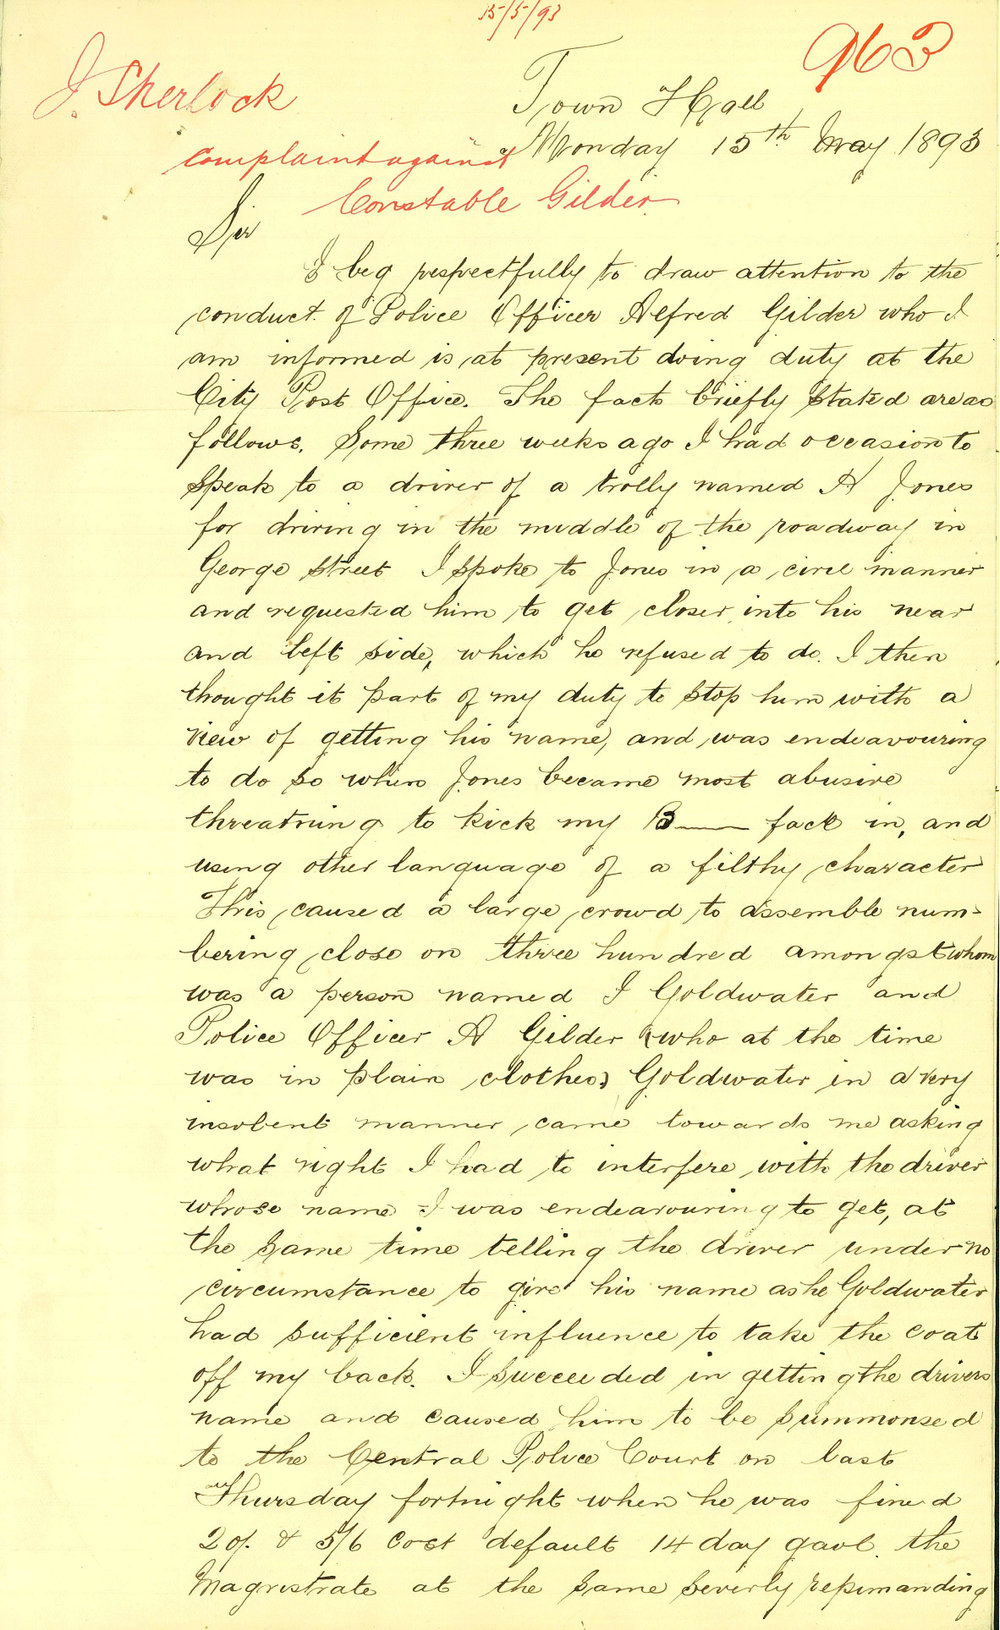 15/5/93
963
J. Sherlock
Town Hall
complaint against
Monday 15th May 1893
Constable Gilder
Sir
I beg respectfully to draw attention to the
conduct of Police Officer Alfred Gilder who I
am informed is at present doing duty at the
City Post Office. The facts briefly stated are as
follows. Some three weeks ago I had occasion to
speak to a driver of a trolly named A Jones
for driving in the middle of the roadway in
George Street I spoke to Jones in a civil manner
and requested him to get closer into his near
and left side, which he refused to do. I then
thought it part of my duty to stop him with a
view of getting his name, and was endeavouring
to do so when Jones became most abusive
threatning to kick my B—— face in, and
using other language of a filthy character
This caused a large crowd to assemble num-
bering close on three hundred amongst whom
was a person named I Goldwater and
Police Officer A Gilder (who at the time
was in plain clothes) Goldwater in a very
insolent manner came towards me asking
what right I had to interfere with the driver
whose name I was endeavouring to get, at
the same time telling the driver under no
circumstance to give his name as he Goldwater
had sufficient influence to take the coat
off my back. I succeeded in getting the drivers
name and caused him to be summonsed
to the Central Police Court on last
Thursday fortnight when he was fined
20/. & 5/6 cost default 14 day gaol. the
Magistrate at the same severly repimanding